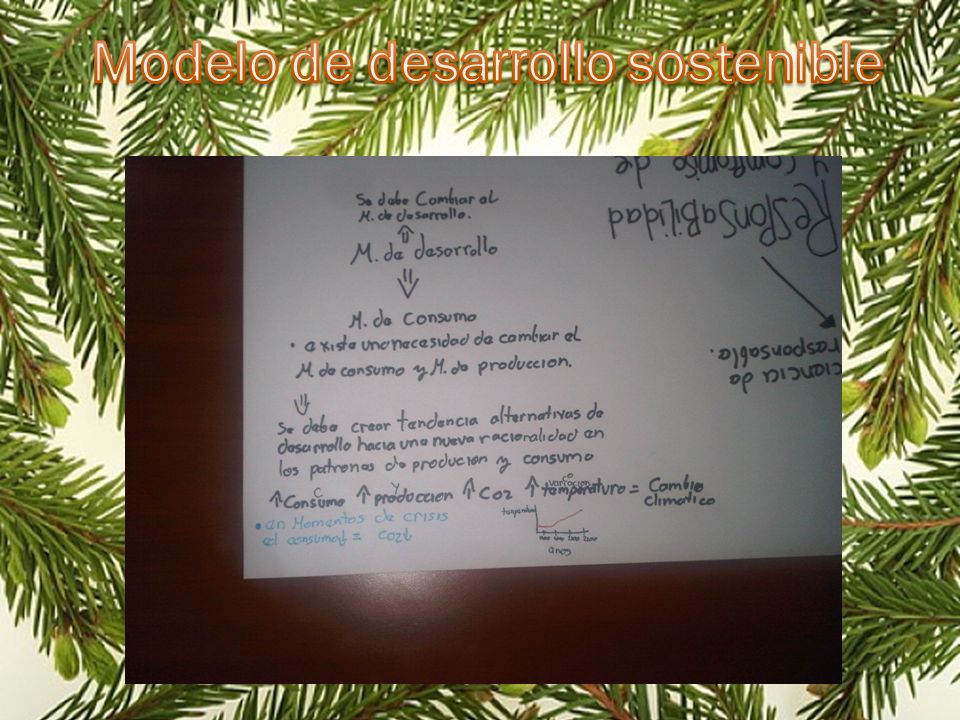 Modelo de desarrollo sostenible
Se debe Cambiar el
M. de desarrollo.
⇧
M. de desorrollo
⇓
M. de Consumo
• existe una necesidad de cambiar el
M. de consumo y M. de produccion.
⇓
Se debe crear tendencia alternativas de
desarrollo hacia una nueva racionalidad en
los patrones de producion y consumo
↑ Consumo ↑ produccion ↑ CO2 ↑ temperatura = Cambio
climatico
• en Momentos de crisis
el consumo↓ = CO2↓
años
y compromiso de
Responsabilidad
responsable.